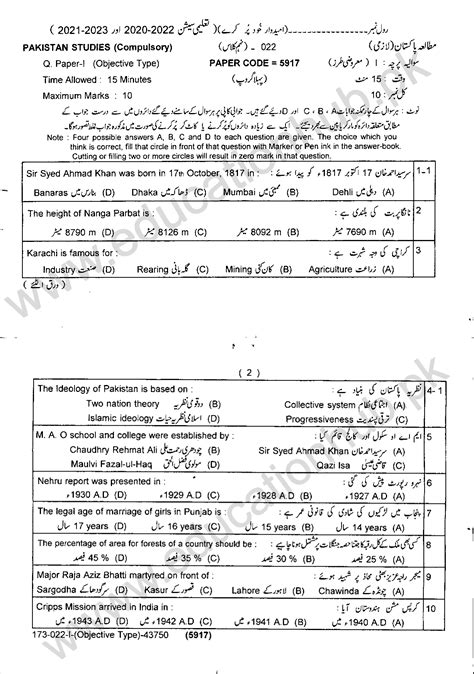 رول نمبر ------------------(امیدوار خود پر کرے)(تعلیمی سیشن 2022-2020 اور 2023-2021)
PAKISTAN STUDIES (Compulsory) 022 - (نہم کلاس) مطالعہ پاکستان (لازمی)
Q. Paper-I (Objective Type) PAPER CODE = 5917 سوالیہ پرچہ : I (معروضی طرز)
Time Allowed : 15 Minutes (پہلا گروپ) وقت : 15 منٹ
Maximum Marks : 10 کل نمبر : 10
Note : Four possible answers A, B, C and D to each question are given. The choice which you
think is correct, fill that circle in front of that question with Marker or Pen ink in the answer-book.
Cutting or filling two or more circles will result in zero mark in that question.
Sir Syed Ahmad Khan was born in 17th October, 1817 in : سرسید احمد خان 17 اکتوبر 1817ء کو پیدا ہوئے : 1-1
Banaras بنارس میں (D) Dhaka ڈھاکہ (C) Mumbai ممبئی (B) Dehli دہلی میں (A)
The height of Nanga Parbat is : نانگا پربت کی بلندی ہے : 2
8790 m میٹر (D) 8126 m میٹر (C) 8092 m میٹر (B) 7690 m میٹر (A)
Karachi is famous for : کراچی کی وجہ شہرت ہے : 3
Industry صنعت (D) Rearing گلہ بانی (C) Mining کان کنی (B) Agriculture زراعت (A)
(ورق الٹئے)
( 2 )
The Ideology of Pakistan is based on : نظریہ پاکستان کی بنیاد ہے : 4-1
Two nation theory دو قومی نظریہ (B) Collective system اجتماعی نظام (A)
Islamic ideology اسلامی نظریہ حیات (D) Progressiveness ترقی پسندیت (C)
M. A. O school and college were established by : ایم اے او سکول اور کالج قائم کیا : 5
Chaudhry Rehmat Ali چودھری رحمت علی (B) Sir Syed Ahmad Khan سرسید احمد خان (A)
Maulvi Fazal-ul-Haq مولوی فضل الحق (D) Qazi Isa قاضی عیسیٰ (C)
Nehru report was presented in : نہرو رپورٹ پیش کی گئی : 6
1930 A.D ء (D) 1929 A.D ء (C) 1928 A.D ء (B) 1927 A.D ء (A)
The legal age of marriage of girls in Punjab is : پنجاب میں لڑکیوں کی شادی کی قانونی عمر ہے : 7
17 years سال (D) 16 years سال (C) 15 years سال (B) 14 years سال (A)
The percentage of area for forests of a country should be : کسی بھی ملک کے کل رقبہ کا جنگلات پر مشتمل ہونا چاہیے : 8
45 % فیصد (D) 35 % فیصد (C) 30 % فیصد (B) 25 % فیصد (A)
Major Raja Aziz Bhatti martyred on front of : میجر راجہ عزیز بھٹی محاذ پر شہید ہوئے : 9
Sargodha سرگودھا کے (D) Kasur قصور کے (C) Lahore لاہور کے (B) Chawinda چونڈہ کے (A)
Cripps Mission arrived in India in : کرپس مشن ہندوستان آیا : 10
1943 A.D ء میں (D) 1942 A.D ء میں (C) 1941 A.D ء میں (B) 1940 A.D ء میں (A)
173-022-I-(Objective Type)-43750 (5917)